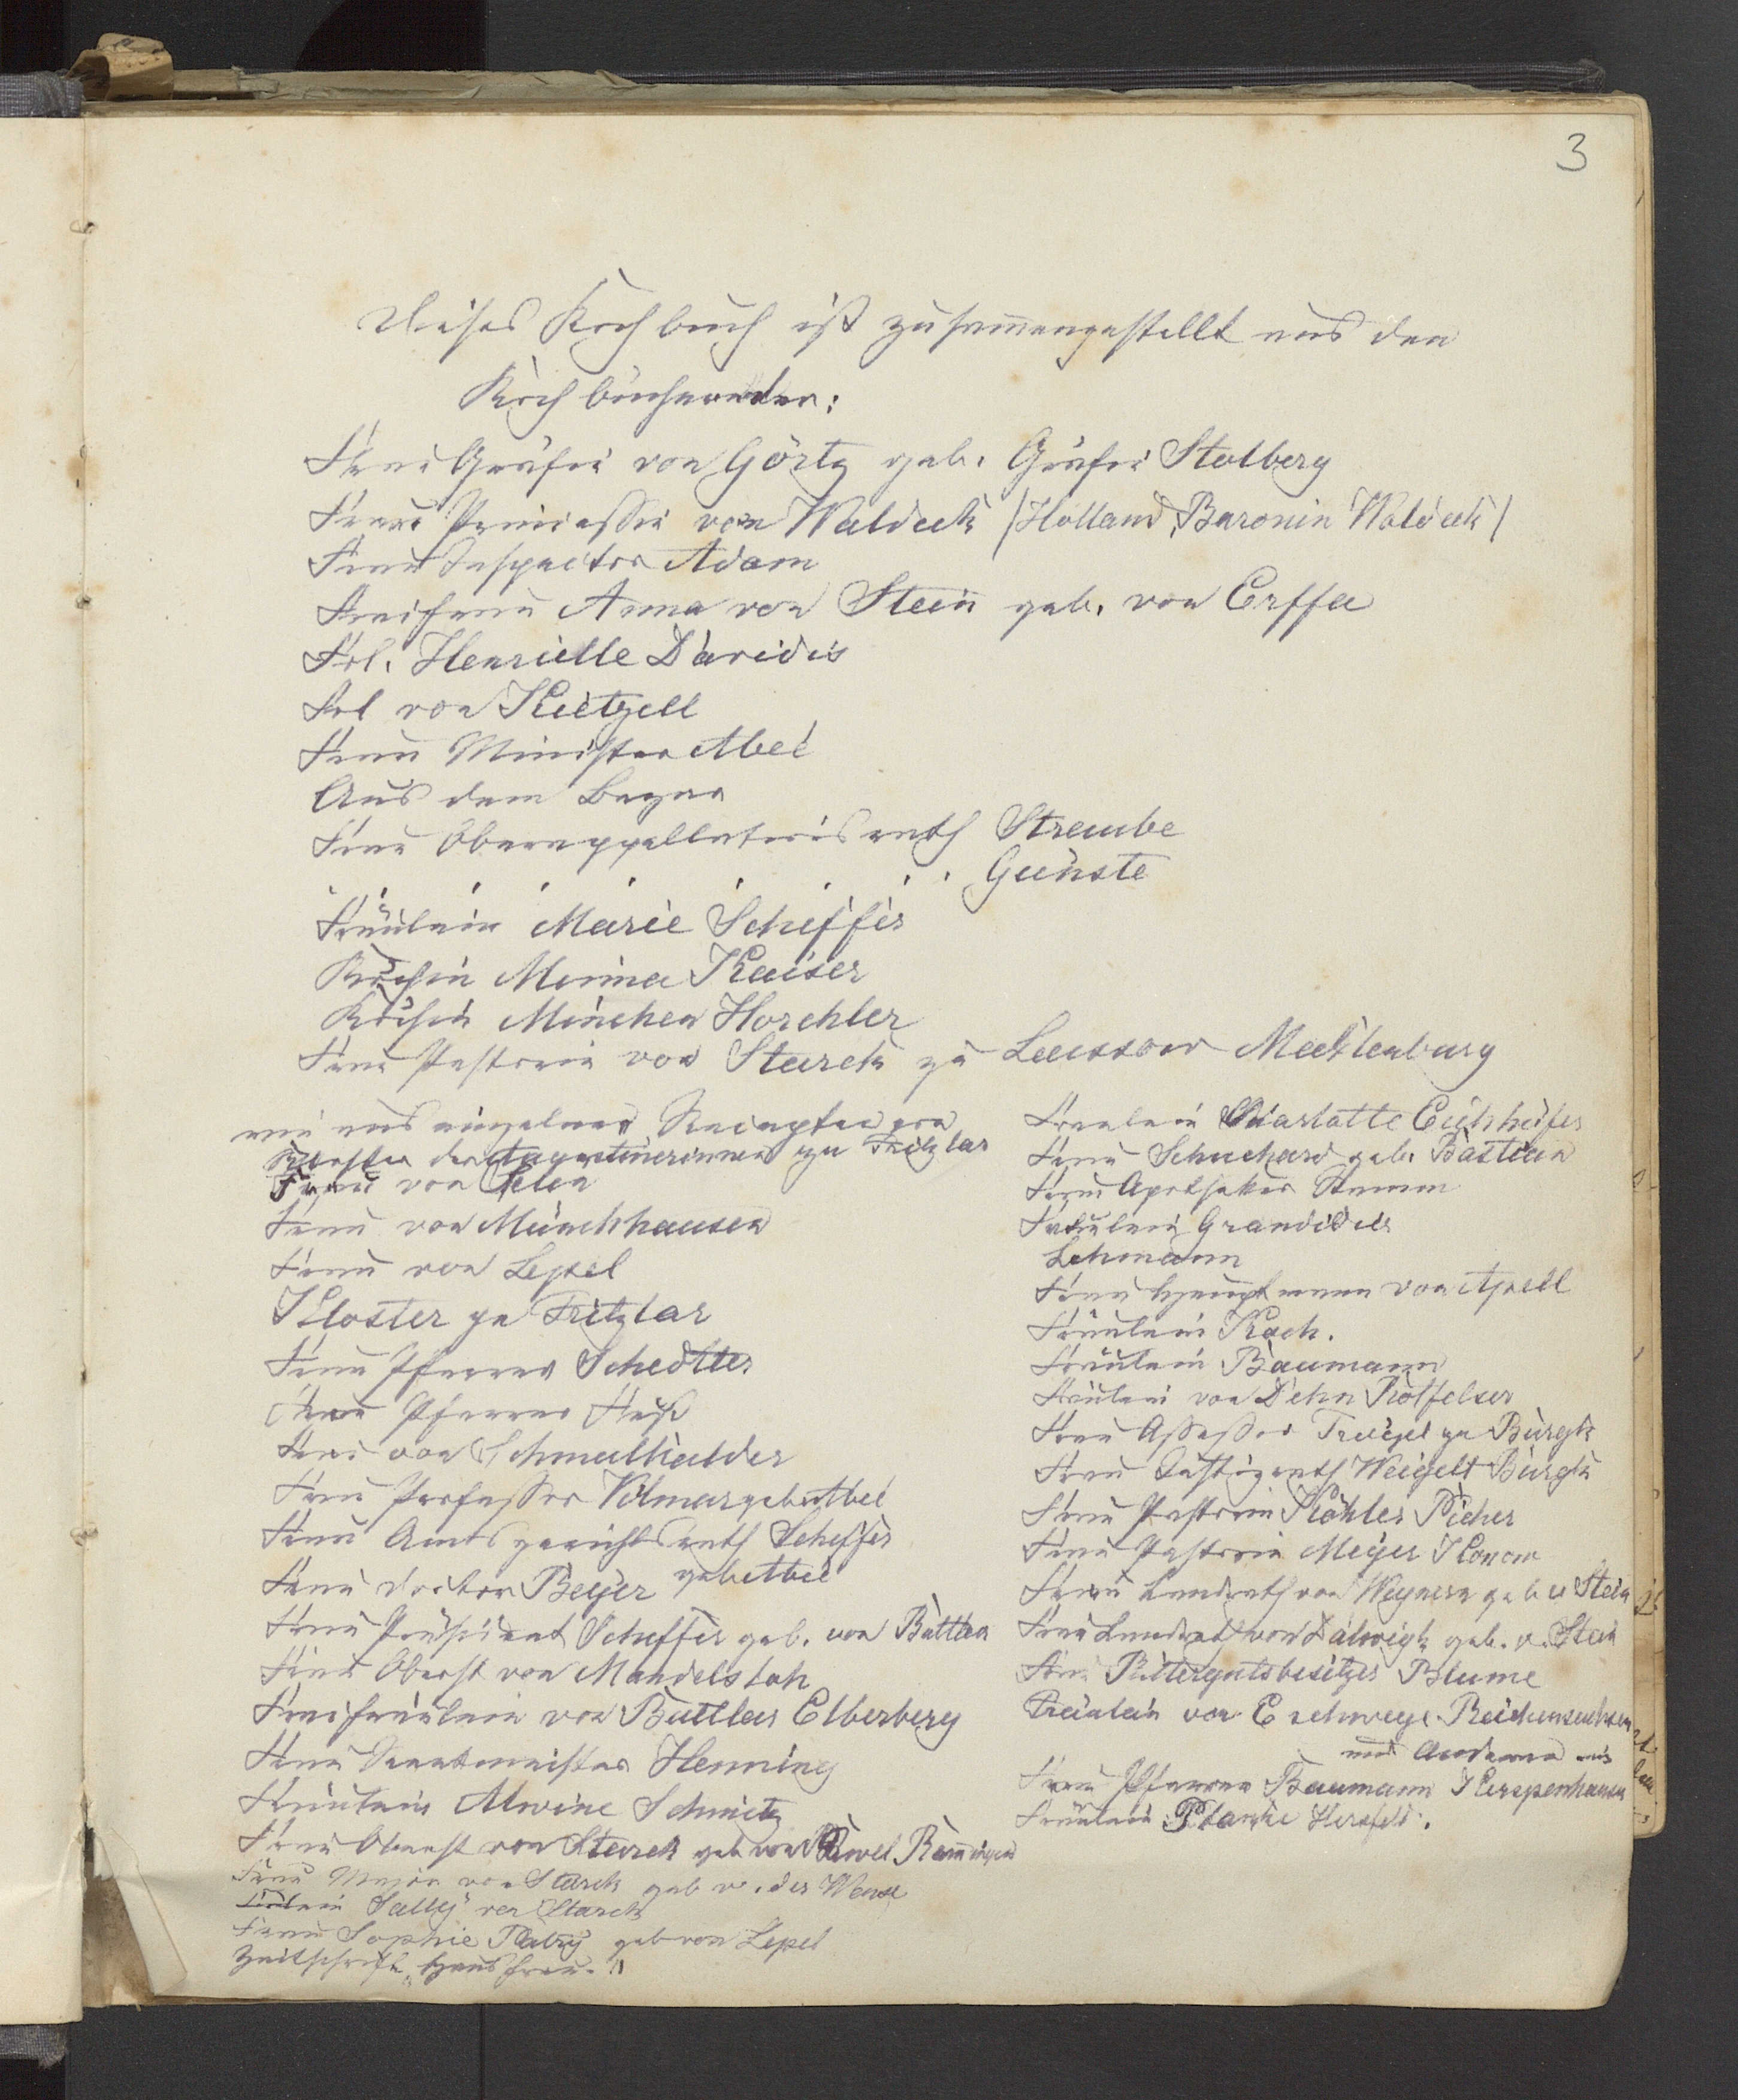 3
Dieses Kochbuch ist zusammengestellt aus den
Kochbüchern der:
Frau Gräfin von Görtz geb. Gräfin Stolberg
Frau Prinzessin von Waldeck (Holland, Baronin Waldeck)
Frau Inspector Adam
Freifrau Anna von Stein geb. von Erffa
Frl. Henriette Davidis
Frl von Kietzell
Frau Minister Abeé
Aus dem Bazar
Frau Oberappellationsrath Straube
Günste
Fräulein Marie Scheffer
Köchin Minna Kaiser
Köchin Minchen Horchler
Frau Pastorin von Starck zu Laussow Mecklenburg
wie aus einzelnen Recepten von
Kloster der Augustinerinnen zu Fritzlar
Frau von
Frau von Münchhausen
Frau von Lepel
Kloster zu Fritzlar
Frau Pfarrer Schedtler
Frau Pfarrer
Frau von Schmalkalder
Frau Professor Vilmar geb Abeé
Frau Amtsgerichtsrath Scheffer
geb Abeé
Frau Doctor Beyer
Frau Präsident Scheffer geb. von Buttlar
Frau Oberst von Mandelsloh
Freifräulein von Buttlar Elberberg
Frau Rentmeister Henning
Fräulein Alwine Schmitz
Frau Oberst von Starck geb von Pawel Ramingen
Frau Major von Starck geb v. der Wense
Fräulein Sally von Starck
Frau Sophie geb von Lepel
Zeitschrift „Hausfrau."
Fräulein Charlotte Eichhöfer
Frau Schuchard geb. Bastian
Frau Apotheker Stamm
Fräulein Grandidier
Lehmann
Frau Hauptmann von Apell
Fräulein Koch.
Fräulein Baumann
Fräulein von Dehn Rotfelser
Frau Assessor zu Burgk
Frau Justizrath Weigelt Burgk
Frau Pastorin Köhler Picher
Frau Pastorin Meyer Konow
Frau Landrath von geb v Stein
Frau Landrath von Dalwigk geb. v. Stein
Frau Rittergutsbesitzer Blume
Fräulein von Eschwege Reichensachsen
und Anderen
Frau Pfarrer Baumann Kerspenhausen
Fräulein Hersfeld.